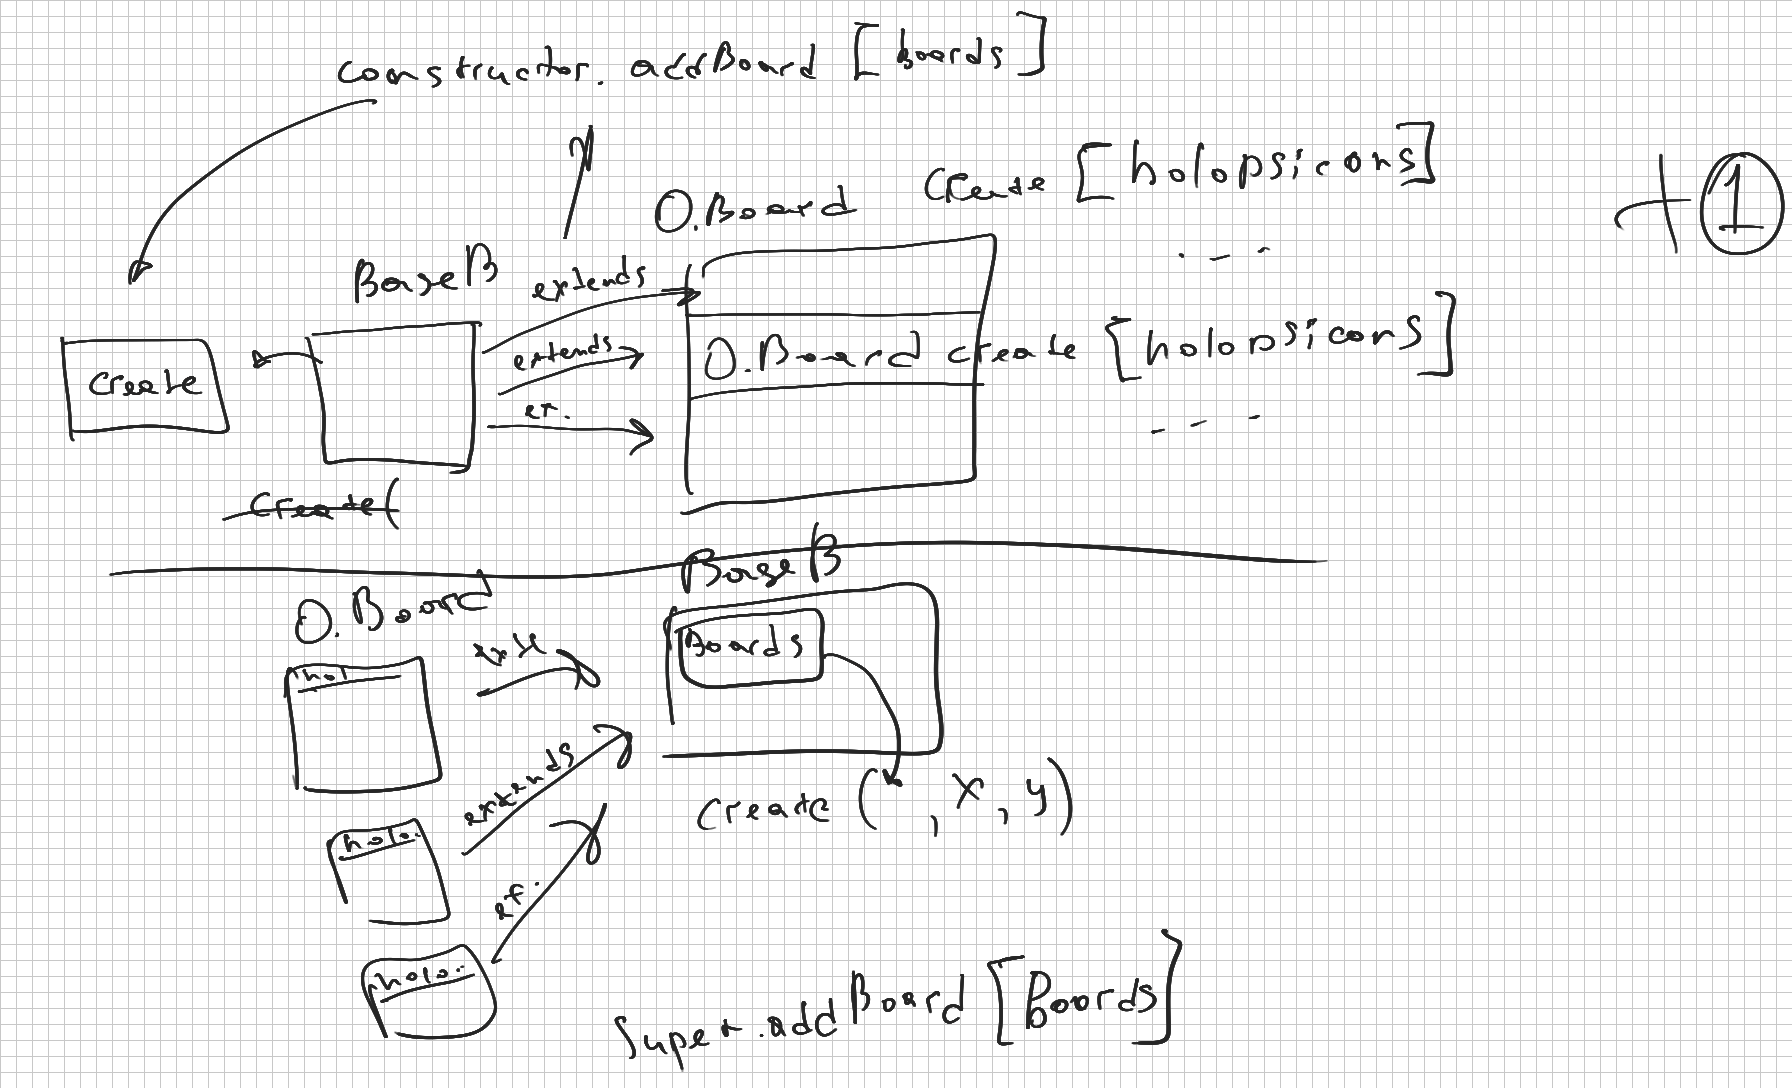 constructor. addBoard [boards]
O.Board create [holopsicons]
+ 1
...
BaseB
extends
create
extends
O.Board create [holopsicons]
et.
...
create(
BaseB
O.Board
Boards
hol
extends
create ( , x, y)
holo.
et.
holo.
super.addBoard [Boards]